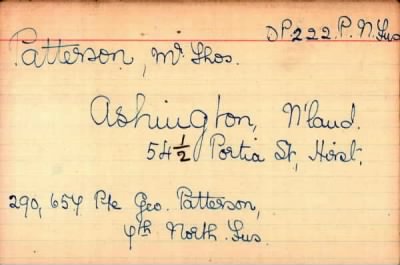 DP222. P. N. Fus
Patterson, Mr Thos.
Ashington, N'land.
54½ Portia St, Hirst.
290,654 Pte Geo. Patterson,
7th North. Fus.